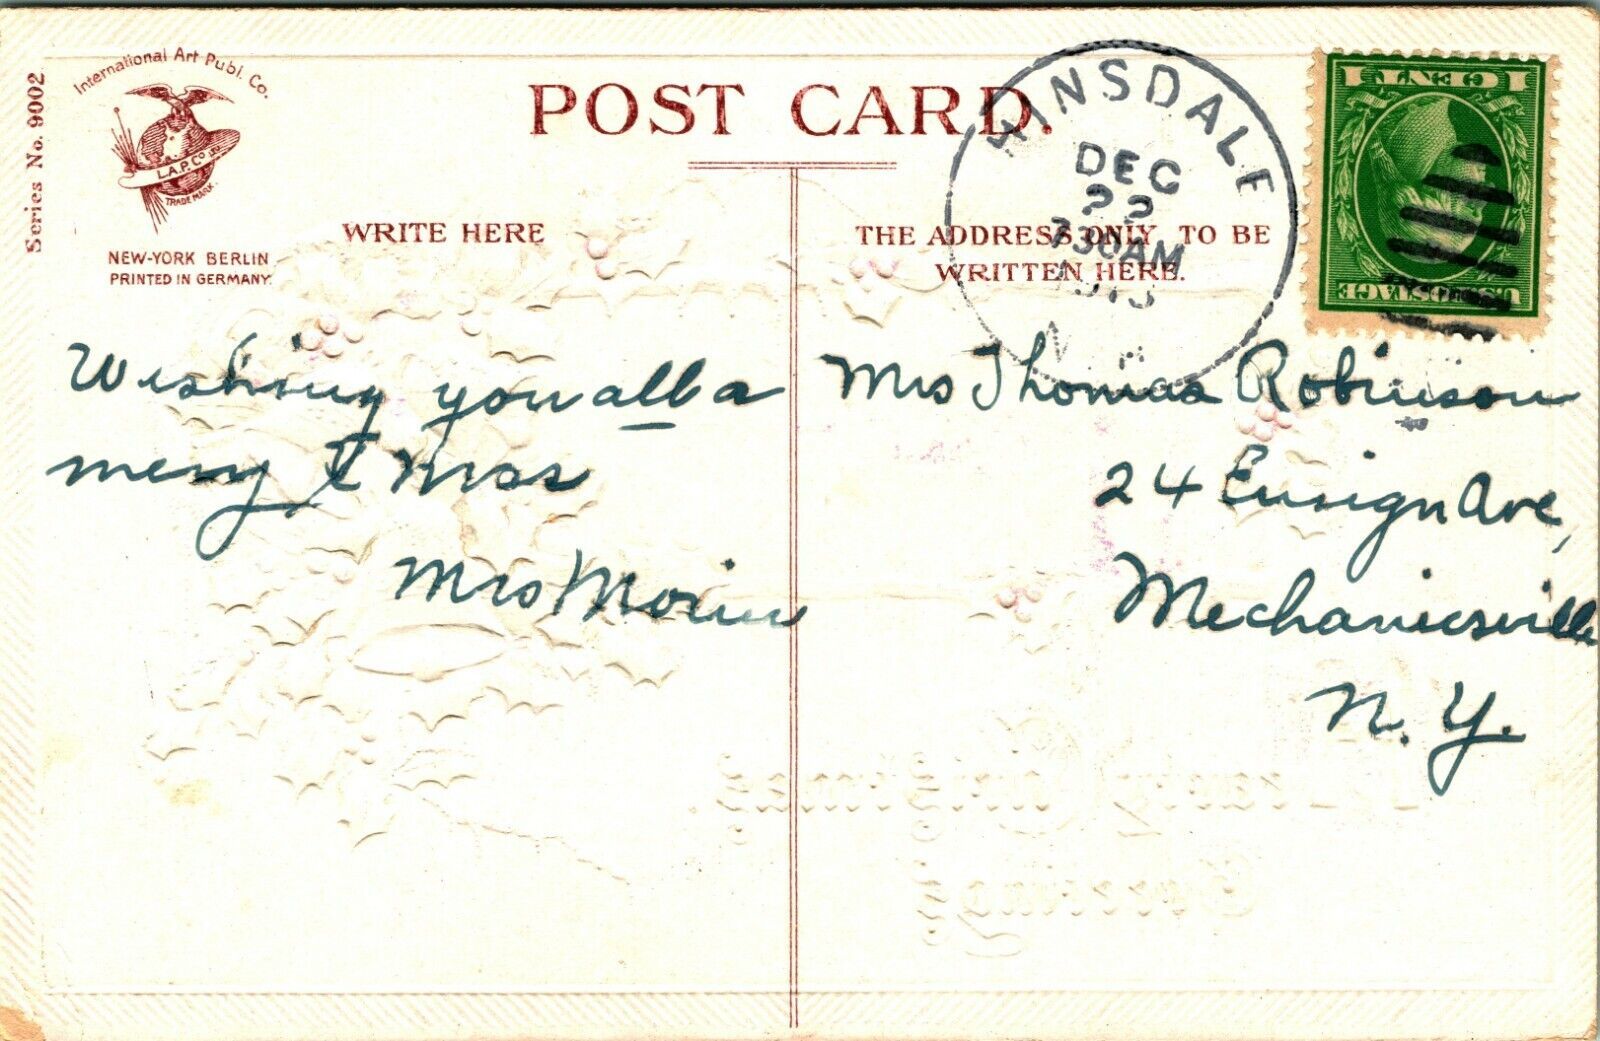 Series No. 9002
International Art Publ. Co.
I.A.P.Co
TRADE MARK.
NEW-YORK BERLIN
PRINTED IN GERMANY.
POST CARD.
WRITE HERE
THE ADDRESS ONLY TO BE
WRITTEN HERE.
HINSDALE
DEC
22
730AM
1913
N.H.
1 CENT 1
U.S. POSTAGE
Wishing you all a
merry X mas
Mrs
Mrs Thomas Robinson
24 Ensign Ave,
Mechanicsville
N. Y.